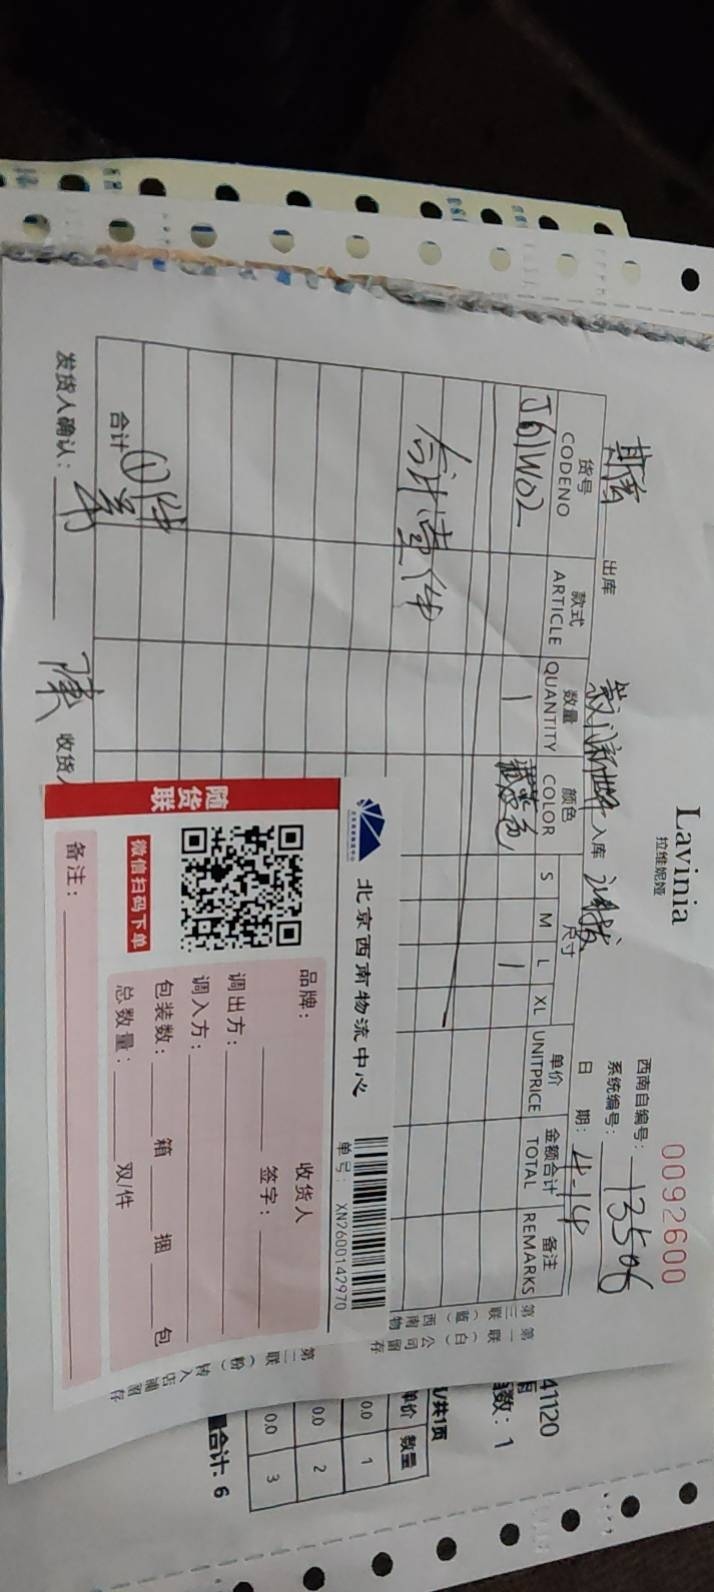 Lavinia
拉维妮娅
0092600
西南自编号：13506
系统编号：
出库
入库
日 期：4.14
货号 款式 数量 颜色 尺寸 单价 金额合计 备注
CODENO ARTICLE QUANTITY COLOR S M L XL UNITPRICE TOTAL REMARKS
J61W02 1 藏蓝色 1
合计壹件
合计 ①件
发货人确认：
收货人
第一联（白）公司留存
第二联（粉）转入店铺留存
第三联（蓝）西南物
北京西南物流中心
单号： XN2600142970
随货联
微信扫码下单
品牌：
收货人
签字：
调出方：
调入方：
包装数： 箱 捆 包
总数量： 双/件
备注：
41120
数：1
/共1页
单价 数量
0.0 1
0.0 2
0.0 3
合计：6